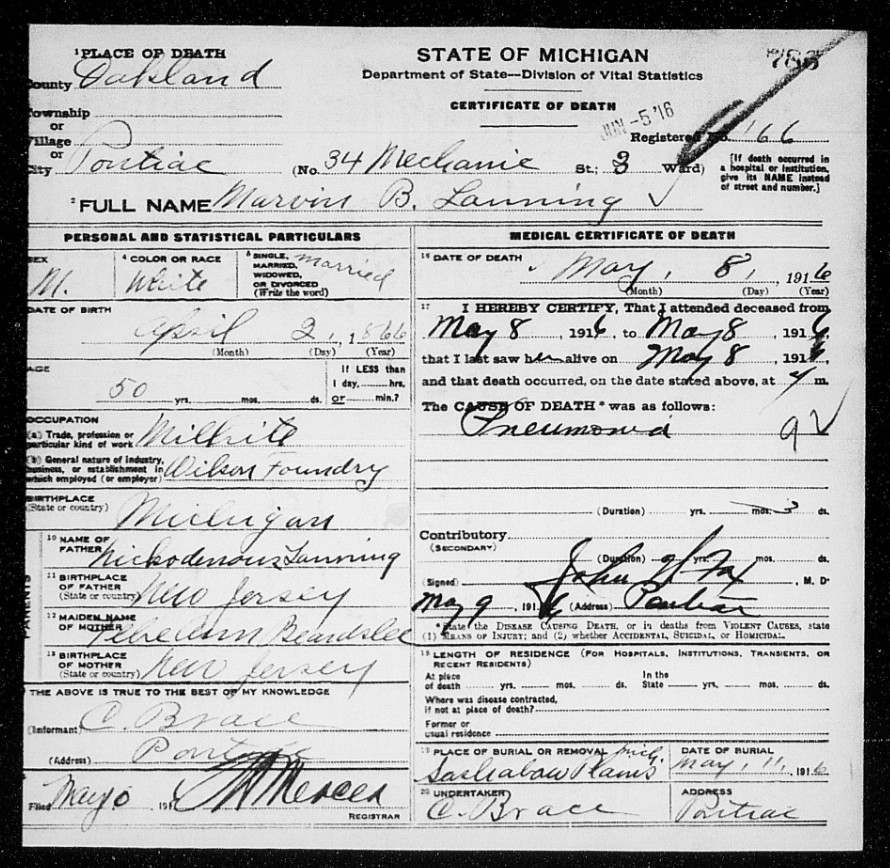 1 PLACE OF DEATH
County Oakland
Township
or
Village
or
City Pontiac (No. 34 Mechanic St.; 3 Ward)
STATE OF MICHIGAN
Department of State—Division of Vital Statistics
CERTIFICATE OF DEATH
JUN -5 '16
Registered No. 166
[If death occurred in
a hospital or institution,
give its NAME instead
of street and number.]
2 FULL NAME Marvin B. Lanning
PERSONAL AND STATISTICAL PARTICULARS
SEX M.
4 COLOR OR RACE White
5 SINGLE, MARRIED, WIDOWED, OR DIVORCED (Write the word) Married
DATE OF BIRTH
April 2, 1866
(Month) (Day) (Year)
AGE
50 yrs. mos. ds.
If LESS than
1 day, hrs.
or min.?
OCCUPATION
(a) Trade, profession or
particular kind of work Millrite
(b) General nature of industry,
business, or establishment in
which employed (or employer) Wilson Foundry
BIRTHPLACE
(State or country) Michigan
PARENTS
10 NAME OF
FATHER Nickodemous Lanning
11 BIRTHPLACE
OF FATHER
(State or country) New Jersey
12 MAIDEN NAME
OF MOTHER Beardslee
13 BIRTHPLACE
OF MOTHER
(State or country) New Jersey
THE ABOVE IS TRUE TO THE BEST OF MY KNOWLEDGE
(Informant) C. Brace
(Address) Pontiac
Filed May 191
REGISTRAR
MEDICAL CERTIFICATE OF DEATH
16 DATE OF DEATH
May, 8, 1916
(Month) (Day) (Year)
17 I HEREBY CERTIFY, That I attended deceased from
May 8, 1916, to May 8, 1916,
that I last saw him alive on May 8, 1916,
and that death occurred, on the date stated above, at m.
The CAUSE OF DEATH* was as follows:
Pneumonia 92
(Duration) yrs. mos. 3 ds.
Contributory
(SECONDARY)
(Duration) yrs. mos. ds.
(Signed) John N. Fox, M. D.
May 9, 1916 (Address) Pontiac
*State the DISEASE CAUSING DEATH, or in deaths from VIOLENT CAUSES, state
(1) MEANS OF INJURY; and (2) whether ACCIDENTAL, SUICIDAL, or HOMICIDAL.
18 LENGTH OF RESIDENCE (FOR HOSPITALS, INSTITUTIONS, TRANSIENTS, OR
RECENT RESIDENTS)
At place
of death yrs. mos. ds.
In the
State yrs. mos. ds.
Where was disease contracted,
if not at place of death?
Former or
usual residence
19 PLACE OF BURIAL OR REMOVAL
Sashabaw Plains Mich.
DATE OF BURIAL
May, 11, 1916
20 UNDERTAKER
C. Brace
ADDRESS
Pontiac